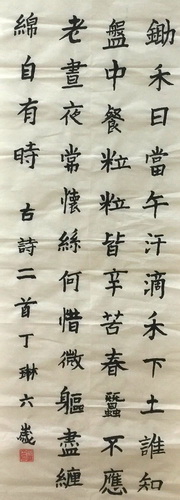 鋤禾日當午汗滴禾下土誰知
盤中餐粒粒皆辛苦春蠶不應
老晝夜常懷絲何惜微軀盡纏
綿自有時 古詩二首丁琳六歲